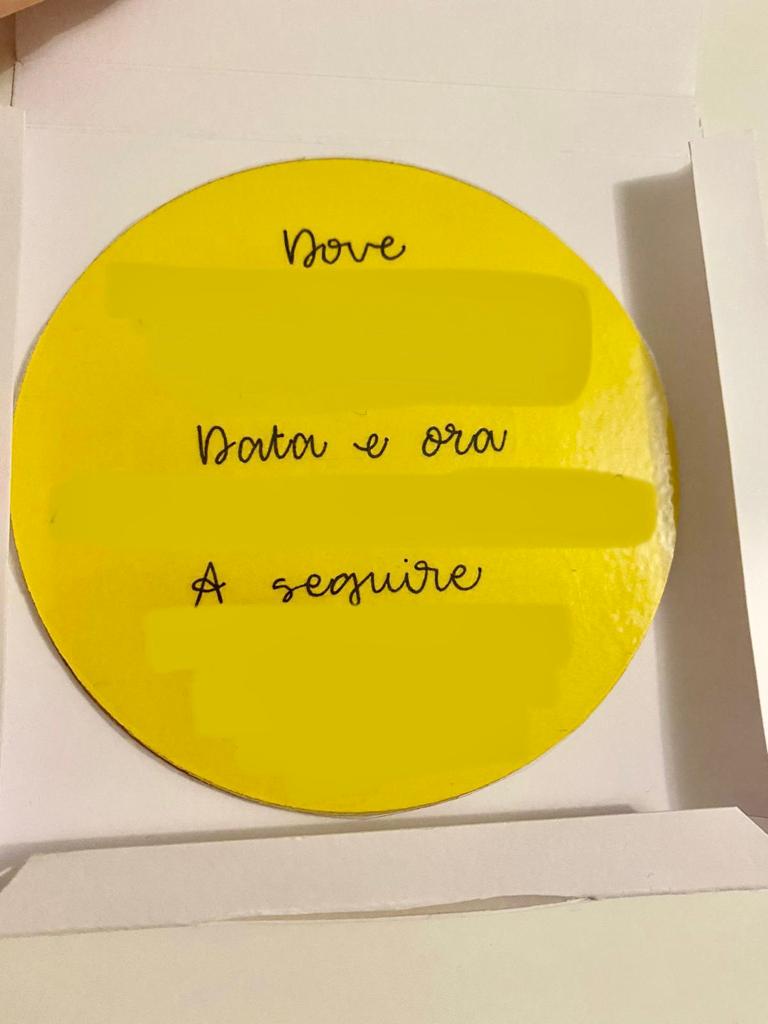 Dove
Data e ora
A seguire